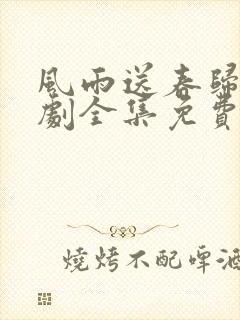 風雨送春歸
劇全集免費
燒烤不配啤酒